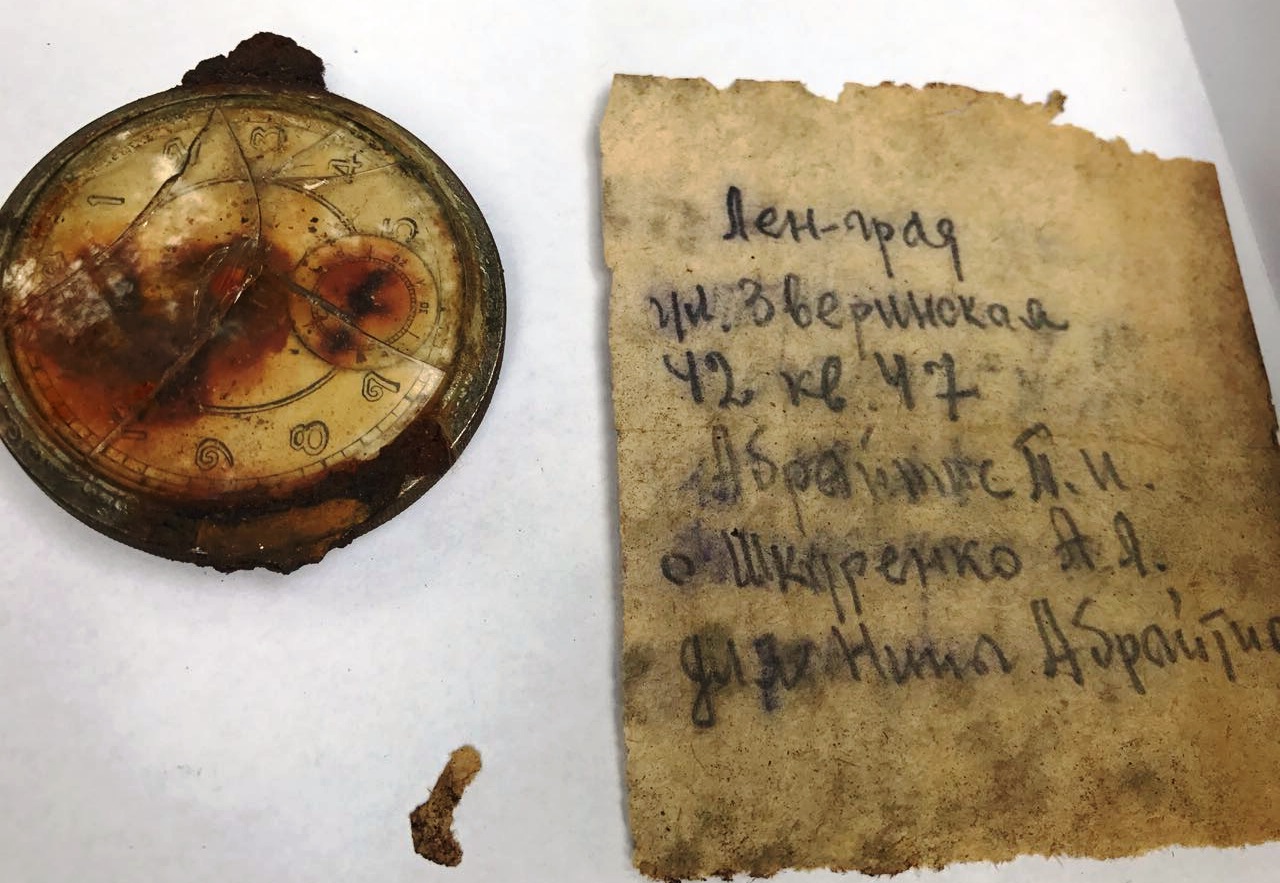 1
2
3
4
5
7
8
9
Лен-град
ул. Зверинская
42 кв. 47
Абрайтис П. И.
о Шкуренко А. Я.
для Нины Абрайтис